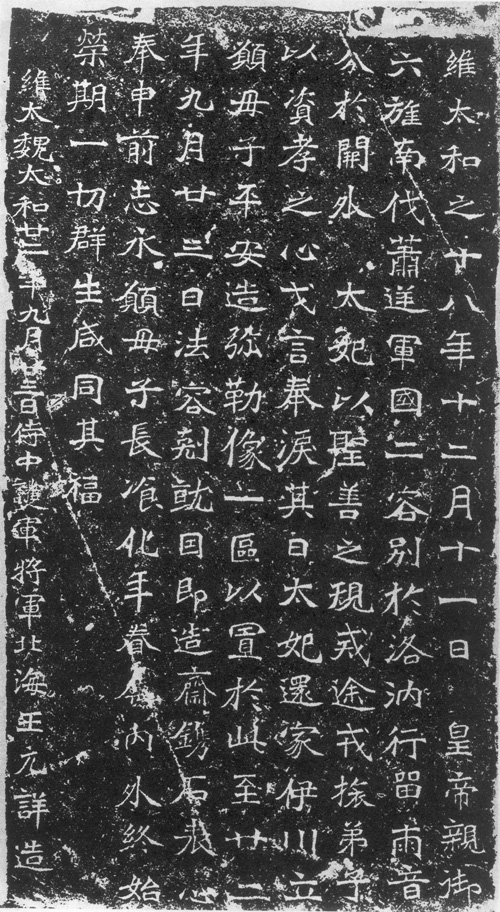 維太和之十八年十二月十一日 皇帝親御
六旌南伐蕭逆軍國二容別於洛汭行留兩音
分於闕外 太妃以聖善之規戒途戎旅弟子
以資孝之心戈言奉淚其日太妃還家伊川立
願母子平安造弥勒像一區以置於此至廿二
年九月廿三日法容剋就因即造齋鐫石表心
奉申前志永願母子長飡化年眷內外終始
榮期一切群生咸同其福
維大魏太和廿二年九月廿三日侍中護軍將軍北海王元詳造